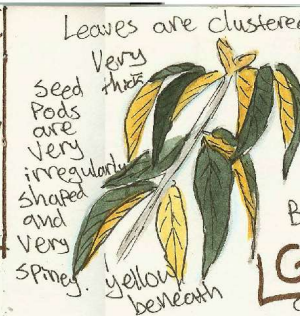 Leaves are clustered
Very
thick
Seed
Pods
are
very
irregularly
shaped
and
very
spiney.
yellow
beneath